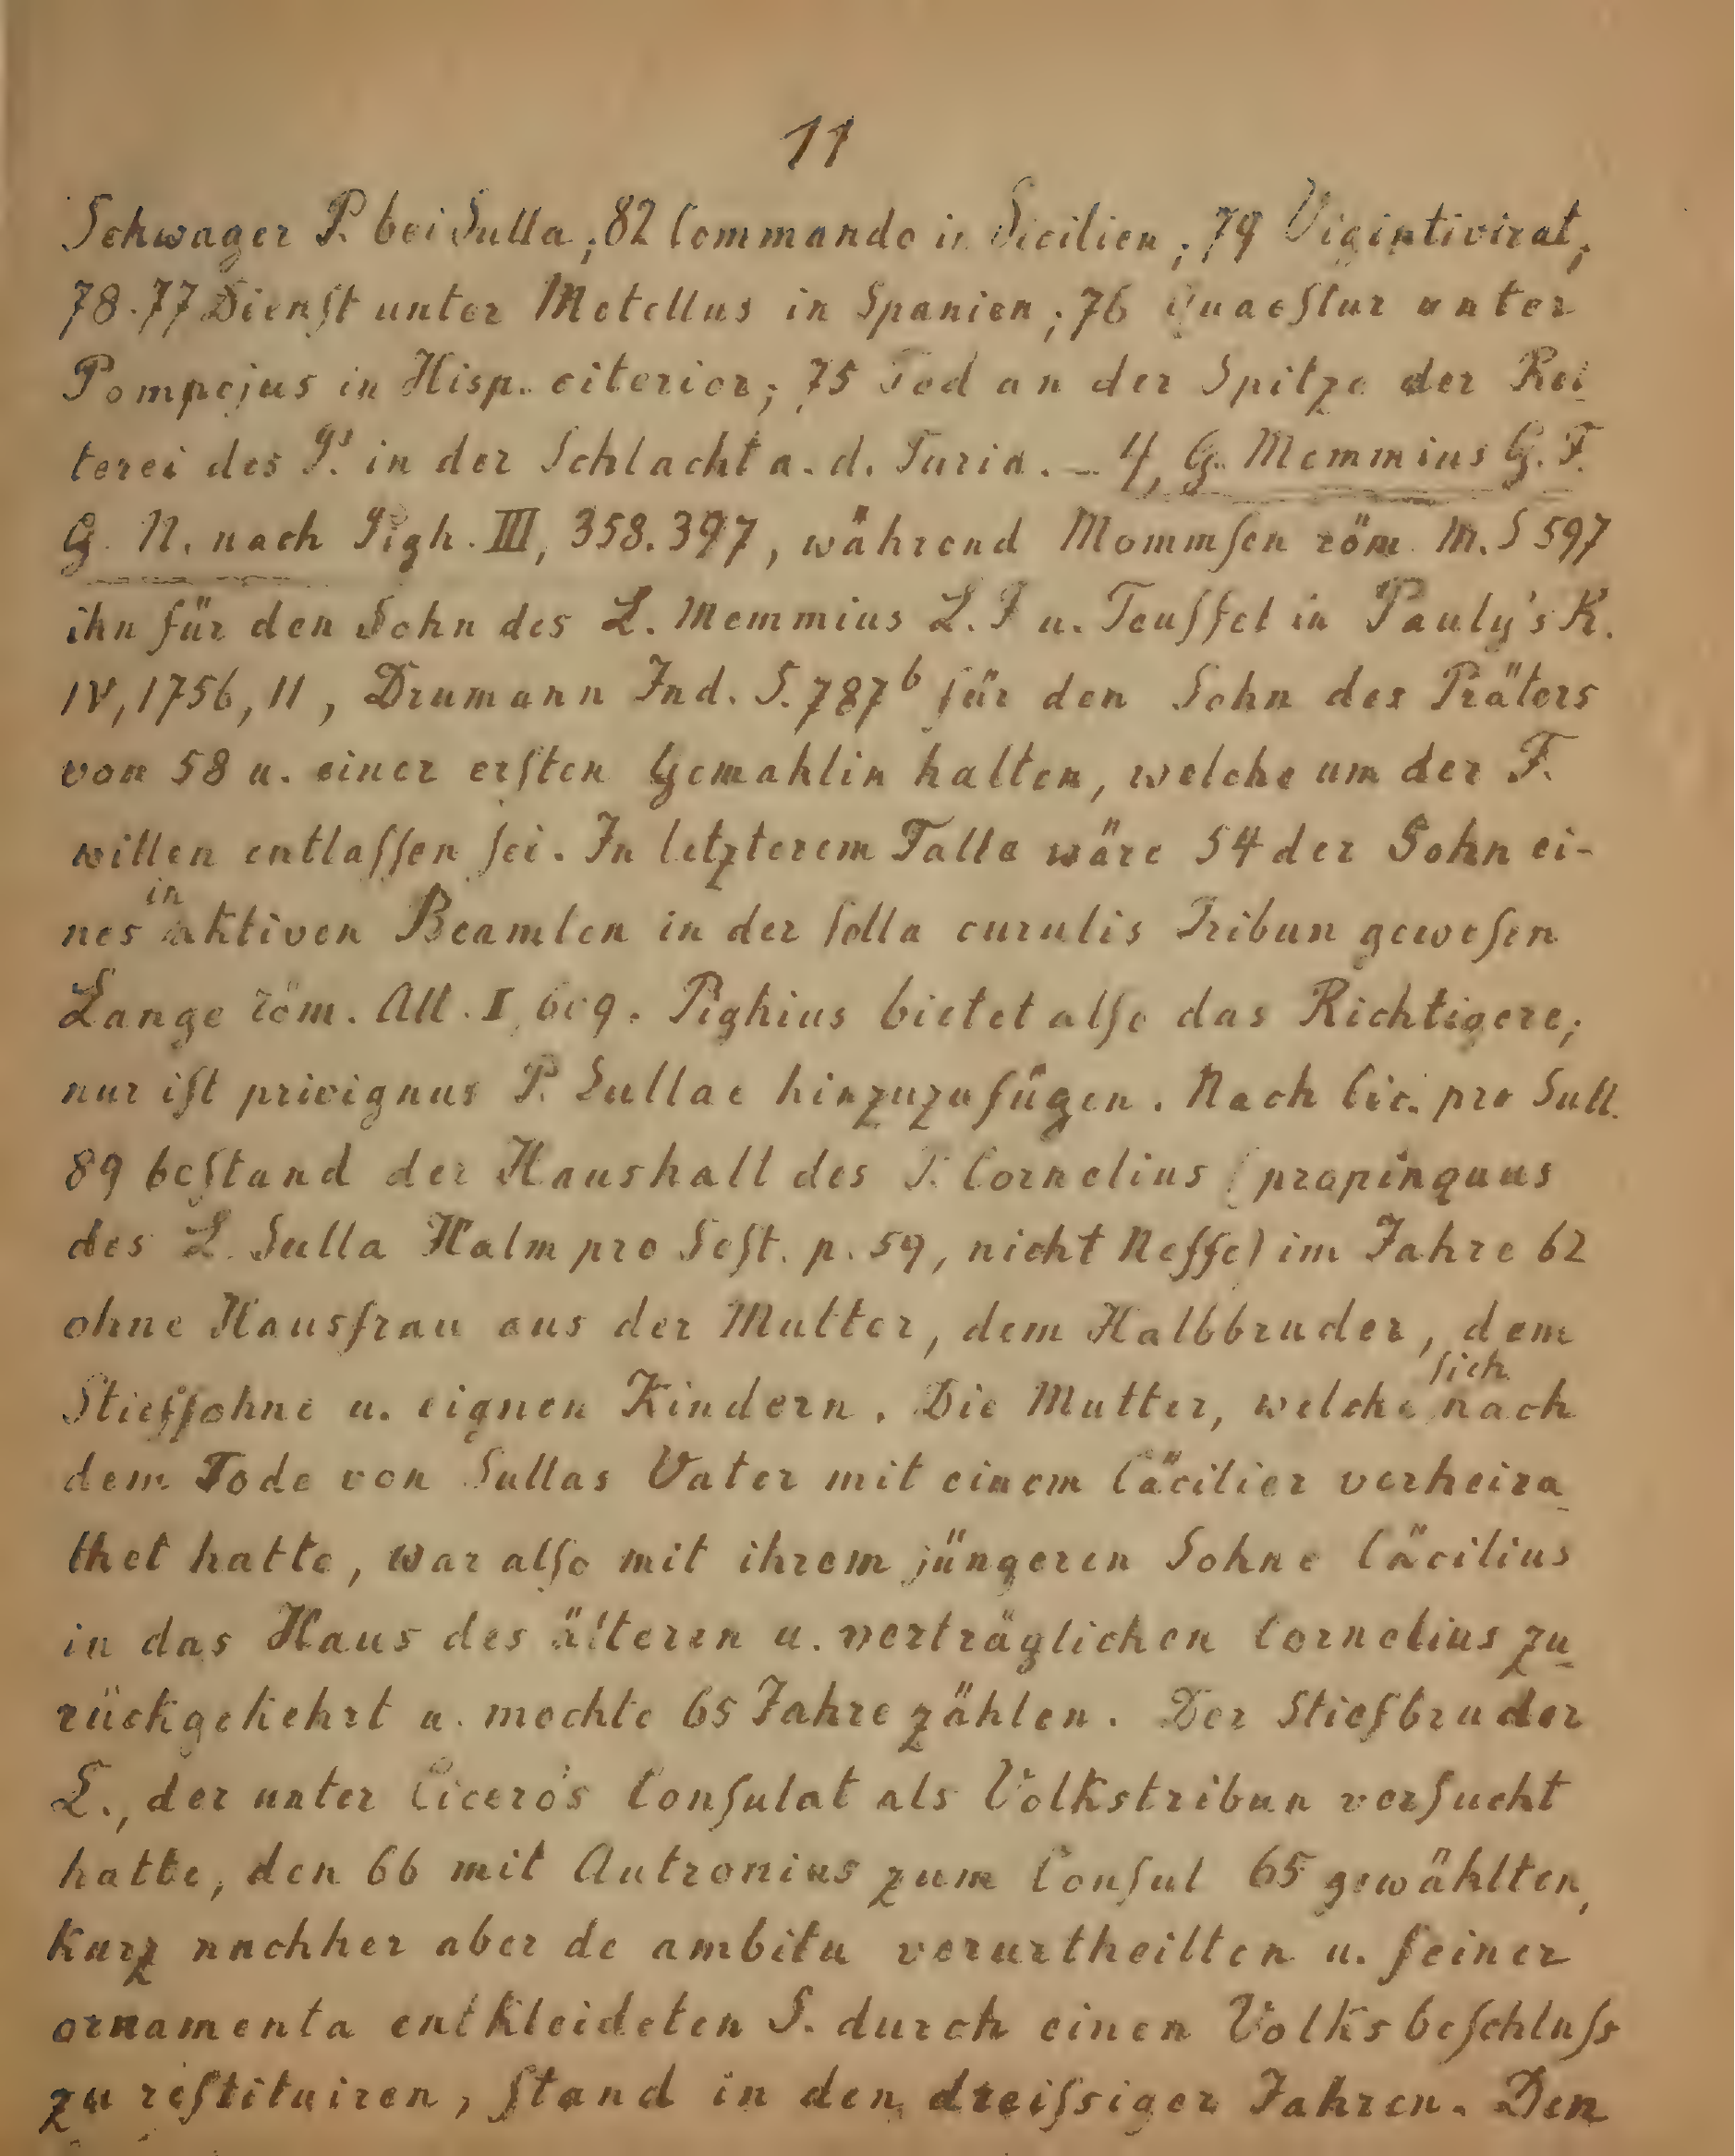 11
Schwager P. bei Sulla; 82 Commando in Sicilien; 79 Vigintivirat;
78.77 Dienſt unter Metellus in Spanien; 76 Quaeſtur unter
Pompejus in Hisp. citerior; 75 Tod an der Spitze der Rei-
terei des P. in der Schlacht a. d. Turia. – 4, G. Memmius G. F.
G. N. nach Pigh. III, 358.397, während Mommſen röm. M. S 597
ihn für den Sohn des L. Memmius L. F u. Teuffel in Pauly's R.
IV, 1756, 11, Drumann Ind. S. 787 b für den Sohn des Präters
von 58 u. einer erſten Gemahlin halten, welche um der F.
willen entlaſſen ſei. In letzterem Falle wäre 54 der Sohn ei-
nes in aktiven Beamten in der ſella curulis Tribun geweſen
Lange röm. Alt. I, 609. Pighius bietet alſo das Richtigere;
nur iſt privignus P. Sullae hinzuzufügen. Nach Cic. pro Sull.
89 beſtand der Haushalt des P. Cornelius (propinquus
des L. Sulla Halm pro Seſt. p. 59, nicht Neffe) im Jahre 62
ohne Hausfrau aus der Mutter, dem Halbbruder, dem
Stiefſohne u. eignen Kindern. Die Mutter, welche ſich nach
dem Tode von Sullas Vater mit einem Cäcilier verheira-
thet hatte, war alſo mit ihrem jüngeren Sohne Cäcilius
in das Haus des älteren u. verträglichen Cornelius zu-
rückgekehrt u. mochte 65 Jahre zählen. Der Stiefbruder
L., der unter Cicero's Conſulat als Volkstribun verſucht
hatte, den 66 mit Autronius zum Conſul 65 gewählten,
kurz nachher aber de ambitu verurtheilten u. ſeiner
ornamenta entkleideten S. durch einen Volksbeſchluſs
zu reſtituiren, ſtand in den dreiſsiger Jahren. Den